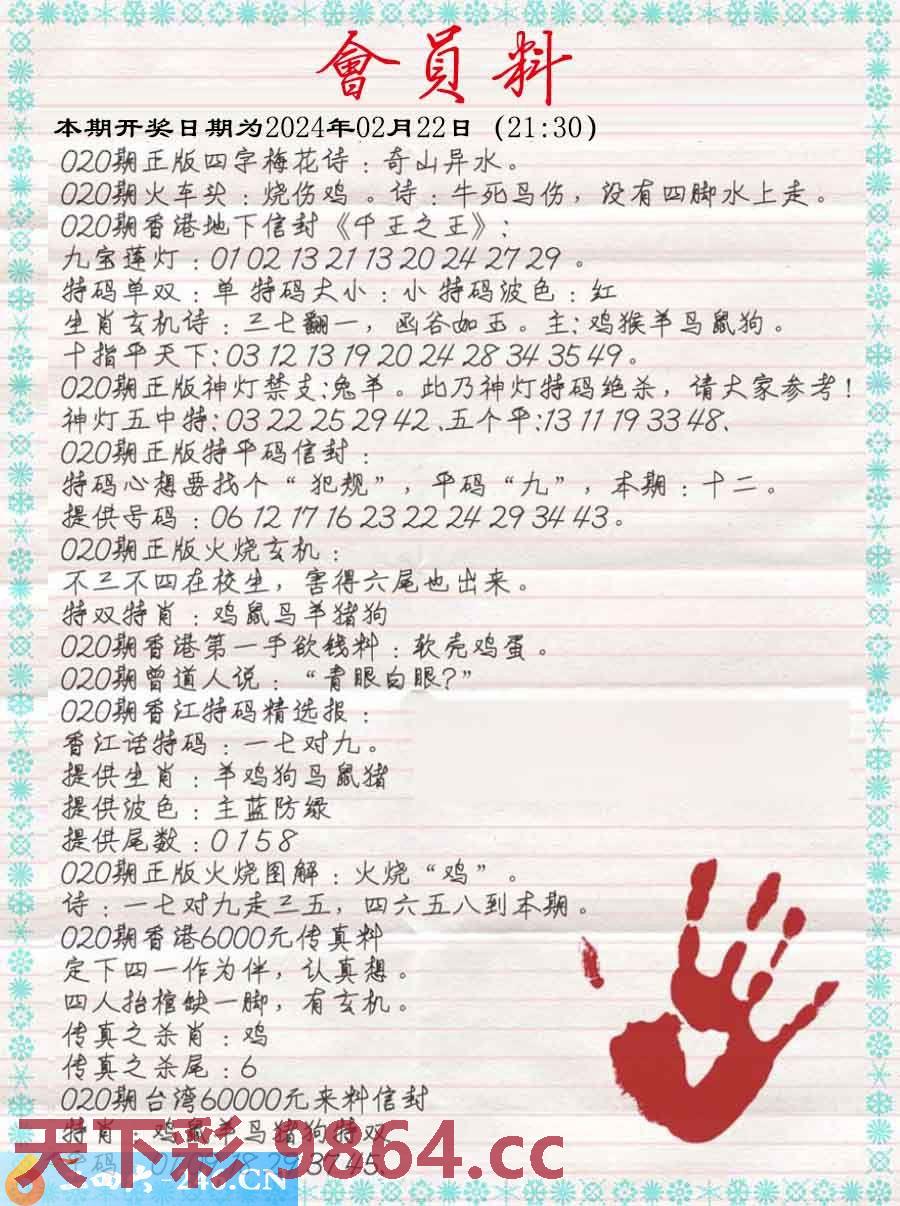 會員料
本期开奖日期为2024年02月22日（21:30）
020期正版四字梅花诗：奇山异水。
020期火车头：烧伤鸡 。诗：牛死马伤，没有四脚水上走。
020期香港地下信封《千王之王》:
九宝莲灯：01 02 13 21 13 20 24 27 29 。
特码单双：单 特码大小：小 特码波色：红
生肖玄机诗：三七翻一，函谷如玉。主: 鸡猴羊马鼠狗。
十指平天下: 03 12 13 19 20 24 28 34 35 49。
020期正版神灯禁支:兔羊。此乃神灯特码绝杀，请大家参考！
神灯五中特: 03 22 25 29 42 、五个平:13 11 19 33 48、
020期正版特平码信封：
特码心想要找个“犯规”，平码“九”，本期：十二。
提供号码：06 12 17 16 23 22 24 29 34 43。
020期正版火烧玄机：
不三不四在校生，害得六尾也出来。
特双特肖：鸡鼠马羊猪狗
020期香港第一手欲钱料：软壳鸡蛋。
020期曾道人说：“青眼白眼?”
020期香江特码精选报：
香江话特码：一七对九。
提供生肖：羊鸡狗马鼠猪
提供波色：主蓝防绿
提供尾数：0 1 5 8
020期正版火烧图解：火烧“鸡”。
诗：一七对九走三五，四六五八到本期。
020期香港6000元传真料
定下四一作为伴，认真想。
四人抬棺缺一脚，有玄机。
传真之杀肖：鸡
传真之杀尾：6
020期台湾60000元来料信封
特肖：鸡鼠羊马猪狗特双
天下彩.9864.cc
29 37 45、
-246.CN